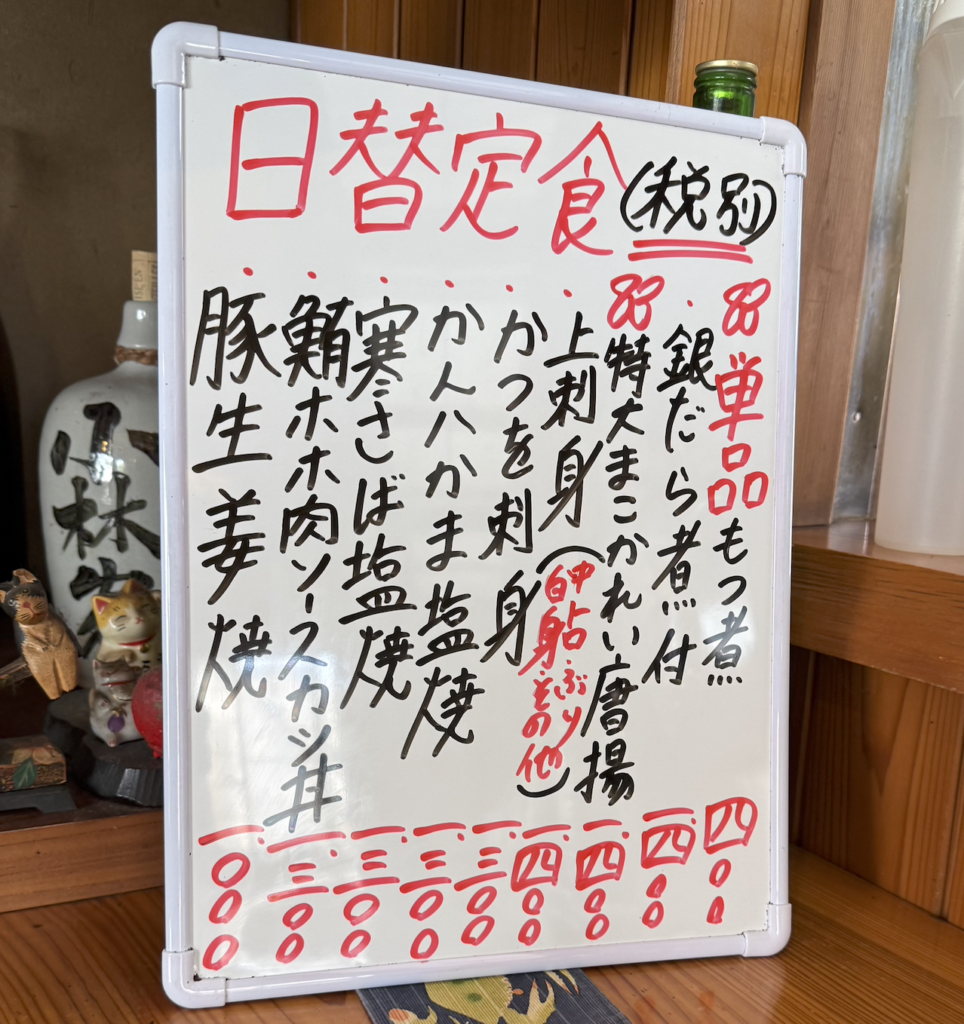 日替定食(税別)
単品 もつ煮 四〇〇
・銀だら煮付 一、四〇〇
特大まこかれい唐揚 一、四〇〇
・上刺身(中トロ・ぶり 白身・その他) 一、四〇〇
・かつを刺身 一、三〇〇
・かンハかま塩焼 一、三〇〇
・寒さば塩焼 一、三〇〇
・鮪ホホ肉ソースカツ丼 一、三〇〇
・豚生姜焼 一、〇〇〇
小林